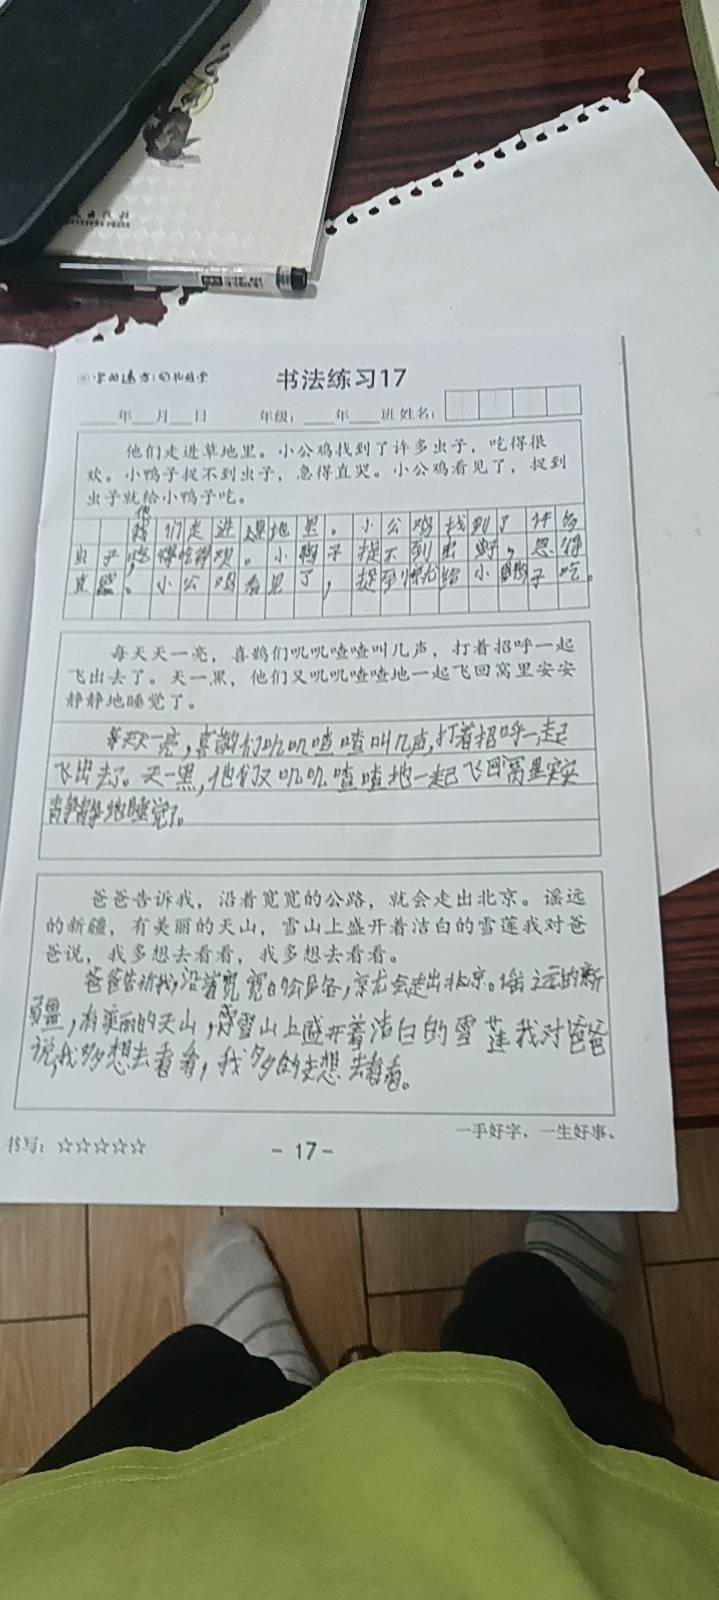 书法练习17
年 月 日 年级： 年 班 姓名：
他们走进草地里。小公鸡找到了许多虫子，吃得很
欢。小鸭子捉不到虫子，急得直哭。小公鸡看见了，捉到
虫子就给小鸭子吃。
们走进草地里。小公鸡找到了许多
虫子，吃得欢。小鸭子捉不到虫，急得
直哭。小公鸡看见了，捉到就给小鸭子吃。
每天天一亮，喜鹊们叽叽喳喳叫几声，打着招呼一起
飞出去了。天一黑，他们又叽叽喳喳地一起飞回窝里安安
静静地睡觉了。
每天天一亮，喜鹊们叽叽喳喳叫几声，打着招呼一起
飞出去了。天一黑，他们又叽叽喳喳地一起飞回窝里安安
静静地睡觉了。
爸爸告诉我，沿着宽宽的公路，就会走出北京。遥远
的新疆，有美丽的天山，雪山上盛开着洁白的雪莲我对爸
爸说，我多想去看看，我多想去看看。
爸爸告诉我，沿着宽宽的公路，就会走出北京。遥远的新
疆，有美丽的天山，雪山上盛开着洁白的雪莲我对爸爸
说，我多想去看看，我多想去看看。
书写：☆☆☆☆☆
- 17 -
一手好字，一生好事。